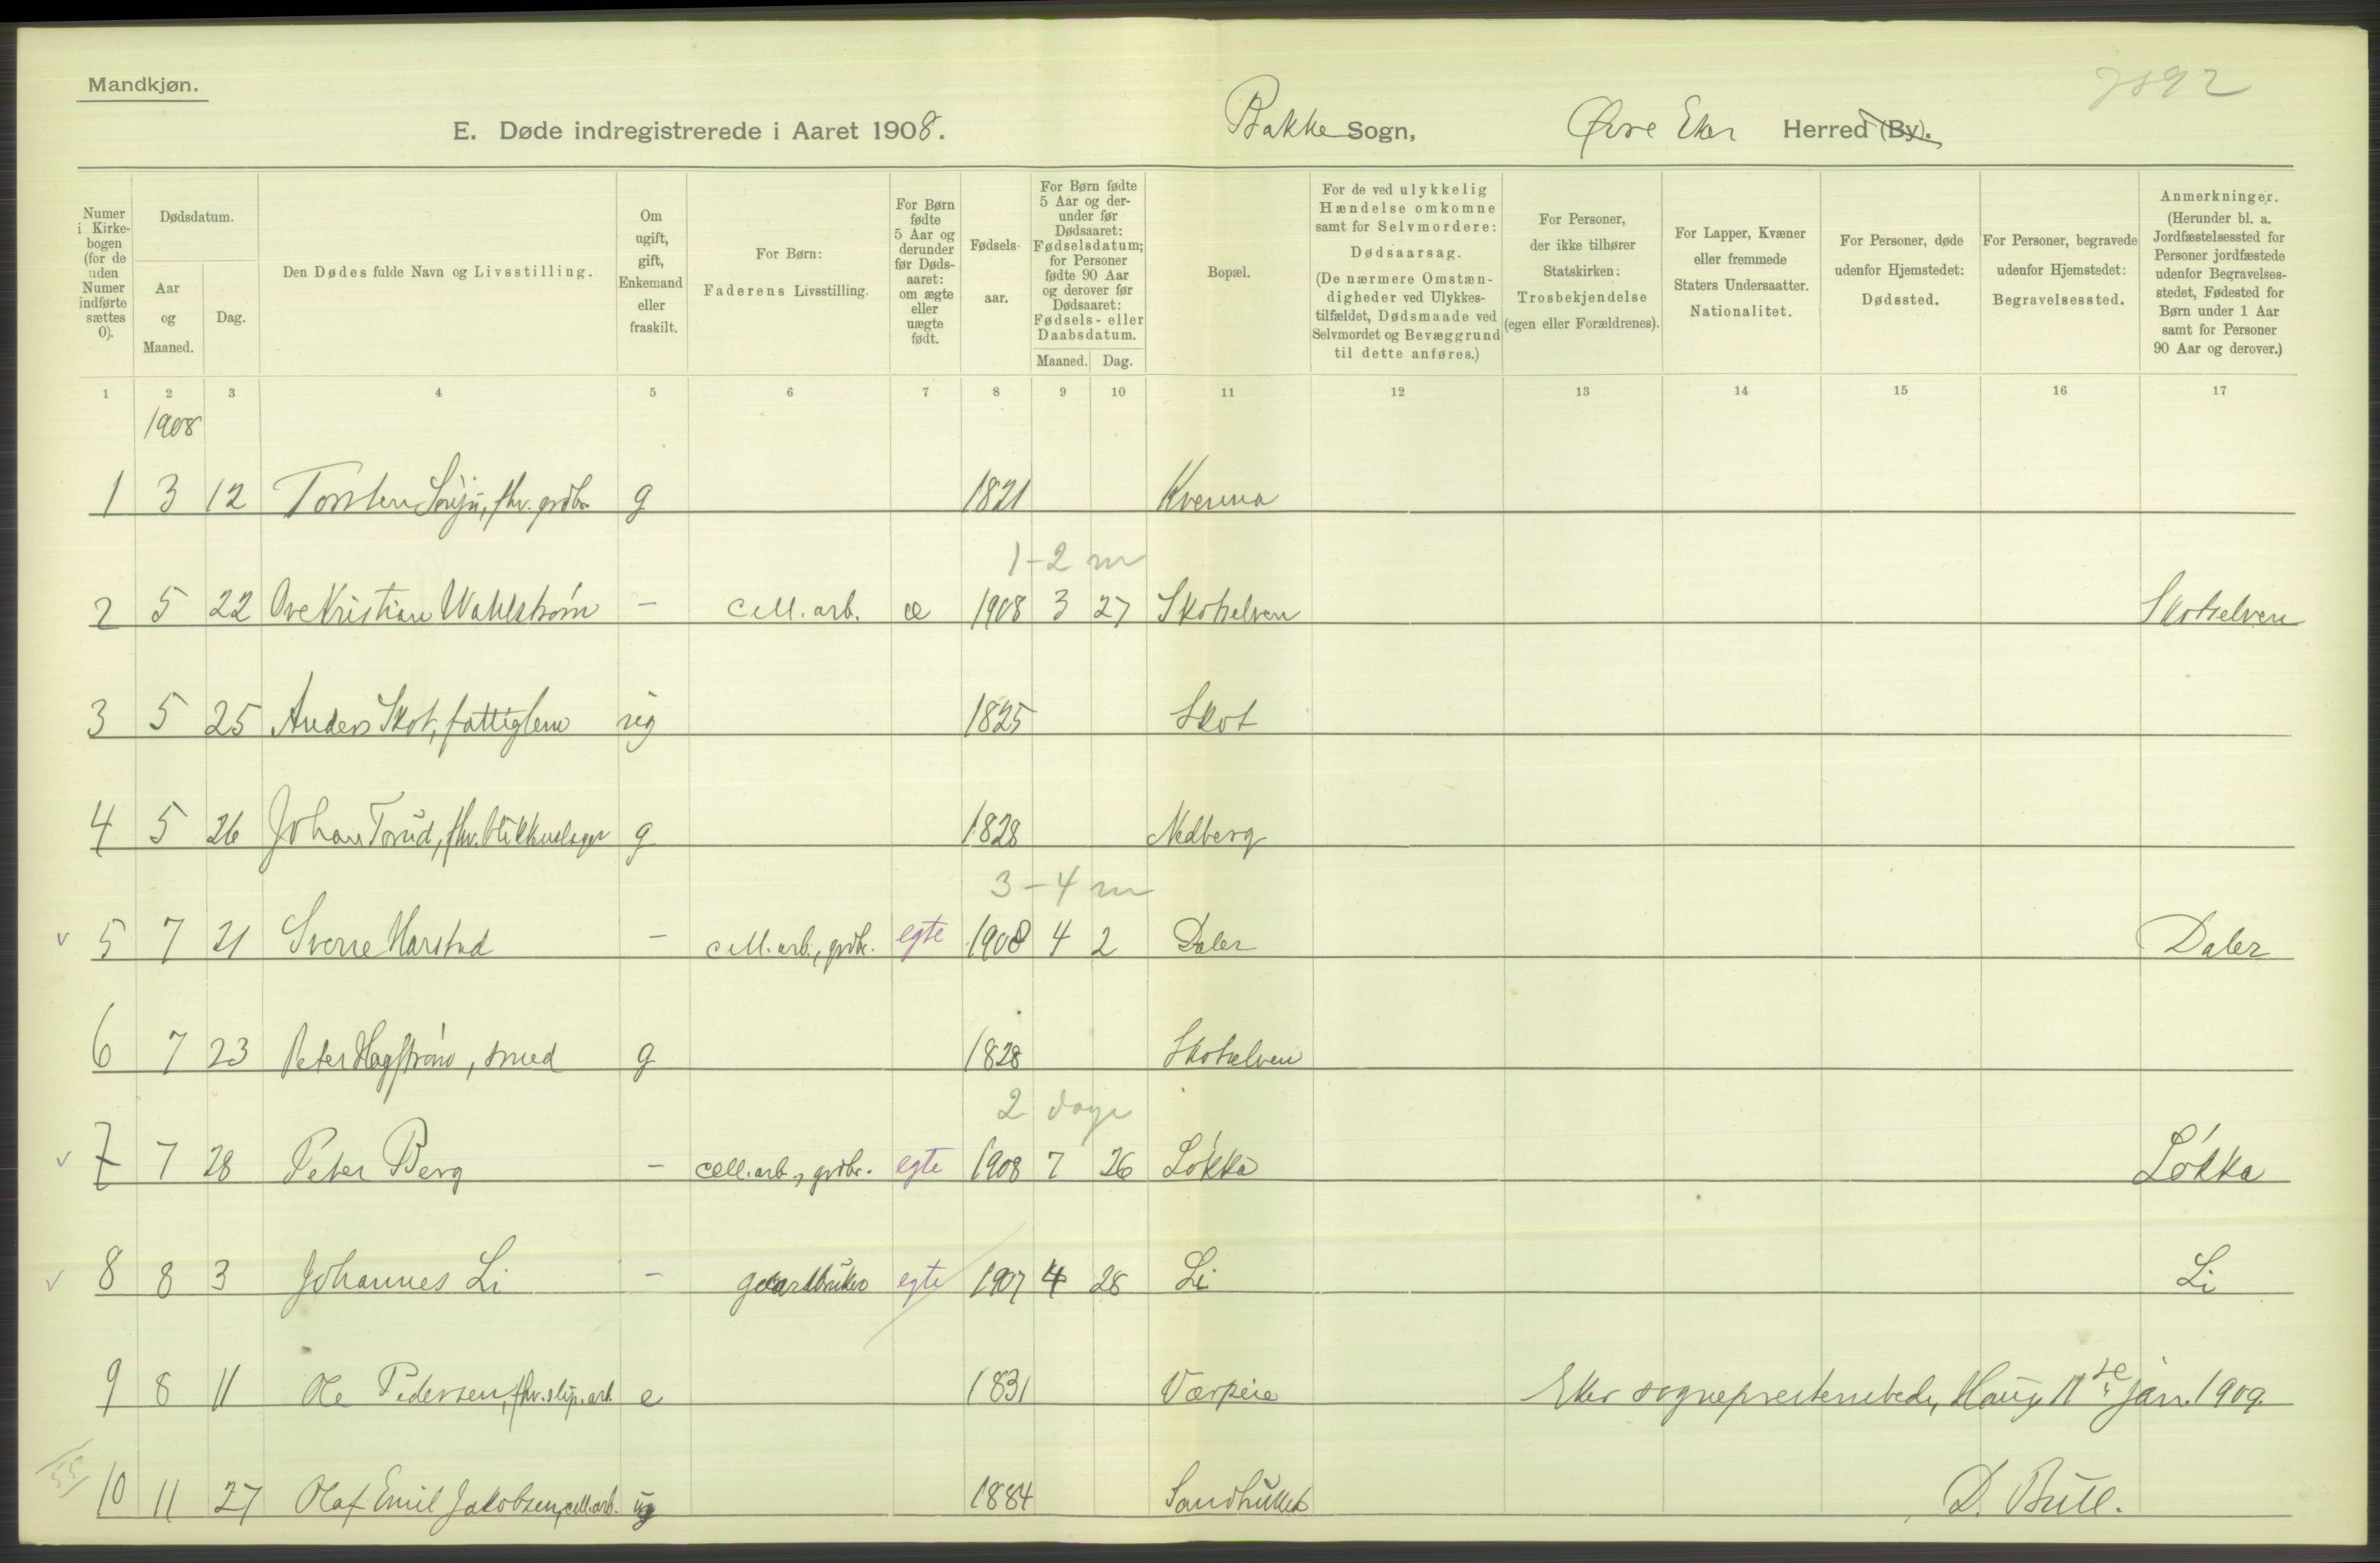 Mandkjøn.
7892
E. Døde indregistrerede i Aaret 1908. Bakke Sogn, Øvre Eker Herred (By).
Numer i Kirkebogen (for de uden Numer indførte sættes 0).
Dødsdatum.
Aar og Maaned.
Dag.
Den Dødes fulde Navn og Livsstilling.
Om ugift, gift, Enkemand eller fraskilt.
For Børn: Faderens Livsstilling.
For Børn fødte 5 Aar og derunder før Dødsaaret: om ægte eller uægte født.
Fødselsaar.
For Børn fødte 5 Aar og derunder før Dødsaaret: Fødselsdatum; for Personer fødte 90 Aar og derover før Dødsaaret: Fødsels- eller Daabsdatum.
Maaned. Dag.
Bopæl.
For de ved ulykkelig Hændelse omkomne samt for Selvmordere: Dødsaarsag. (De nærmere Omstændigheder ved Ulykkestilfældet, Dødsmaade ved Selvmordet og Bevæggrund til dette anføres.)
For Personer, der ikke tilhører Statskirken: Trosbekjendelse (egen eller Forældrenes).
For Lapper, Kvæner eller fremmede Staters Undersaatter. Nationalitet.
For Personer, døde udenfor Hjemstedet: Dødssted.
For Personer, begravede udenfor Hjemstedet: Begravelsessted.
Anmerkninger. (Herunder bl. a. Jordfæstelsessted for Personer jordfæstede udenfor Begravelsesstedet, Fødested for Børn under 1 Aar samt for Personer 90 Aar og derover.)
1 2 3 4 5 6 7 8 9 10 11 12 13 14 15 16 17
1908
1 3 12 Torsten fhv. grdbr. g 1821
1-2 m
2 5 22 Ove Kristian Wahlström - cell. arb. æ 1908 3 27 Skotselven Skotselven
3 5 25 Anders Skot, fattiglem ug 1825 Skot
4 5 26 Johan Torud, fhv. blikkenslager g 1828 Nedberg
3-4 m
v 5 7 21 Sverre Harstad - cell. arb., grdbr. egte 1908 4 2 Daler Daler
6 7 23 Peter Hagström, smed g 1828 Skotselven
2 dage
v 7 7 28 Peter Berg - cell. arb., grdbr. egte 1908 7 26 Løkka Løkka
v 8 8 3 Johannes Li - gaardbruker egte 1907 4 28 Li Li
9 8 11 Ole Pedersen, fhv. slip. arb. e 1831 Værpeie Eker sogneprestembede, Haug 11te jan. 1909.
55 10 11 27 Olaf Emil Jakobsen, cell. arb. ug 1884 Sandhullet D. Bull.